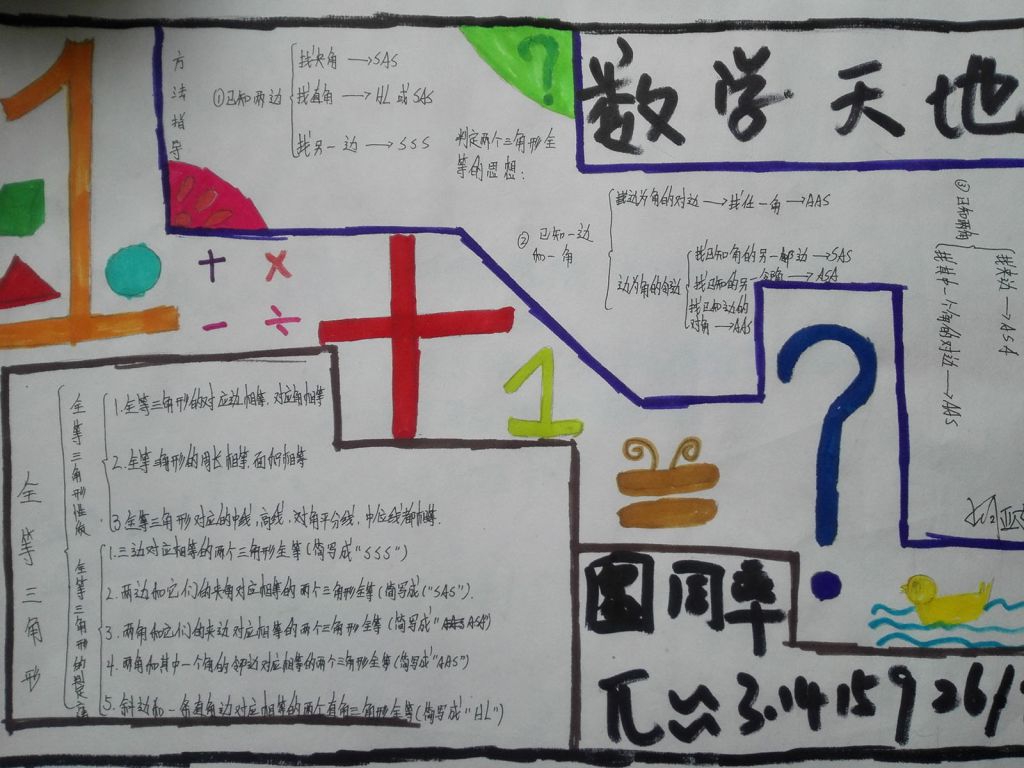 数学天地
方法指导
①已知两边
找夹角→SAS
找直角→HL或SAS
找另一边→SSS
判定两个三角形全
等的思想：
②已知一边
和一角
找边为角的对边→找任一角→AAS
边为角的邻边
找已知角的另一邻边→SAS
找已知的另一→ASA
找已知边的
对角→AAS
③已知两角
找夹边→ASA
找其中一个角的对边→AAS
1
+ ×
- ÷
+
1
=
?
?
全等三角形
全等三角形性质
1.全等三角形的对应边相等.对应角相等
2.全等三角形的周长相等.面积相等
3.全等三角形对应的中线,高线,对角平分线,中位线都相等.
全等三角形的判定
1.三边对应相等的两个三角形全等(简写成"SSS")
2.两边和它们的夹角对应相等的两个三角形全等(简写成("SAS").
3.两角和它们的夹边对应相等的两个三角形全等(简写成"ASA")
4.两角和其中一个角的邻边对应相等的两个三角形全等(简写成"AAS")
5.斜边和一条直角边对应相等的两个直角三角形全等(简写成"HL")
圆周率
π≈3.1415926